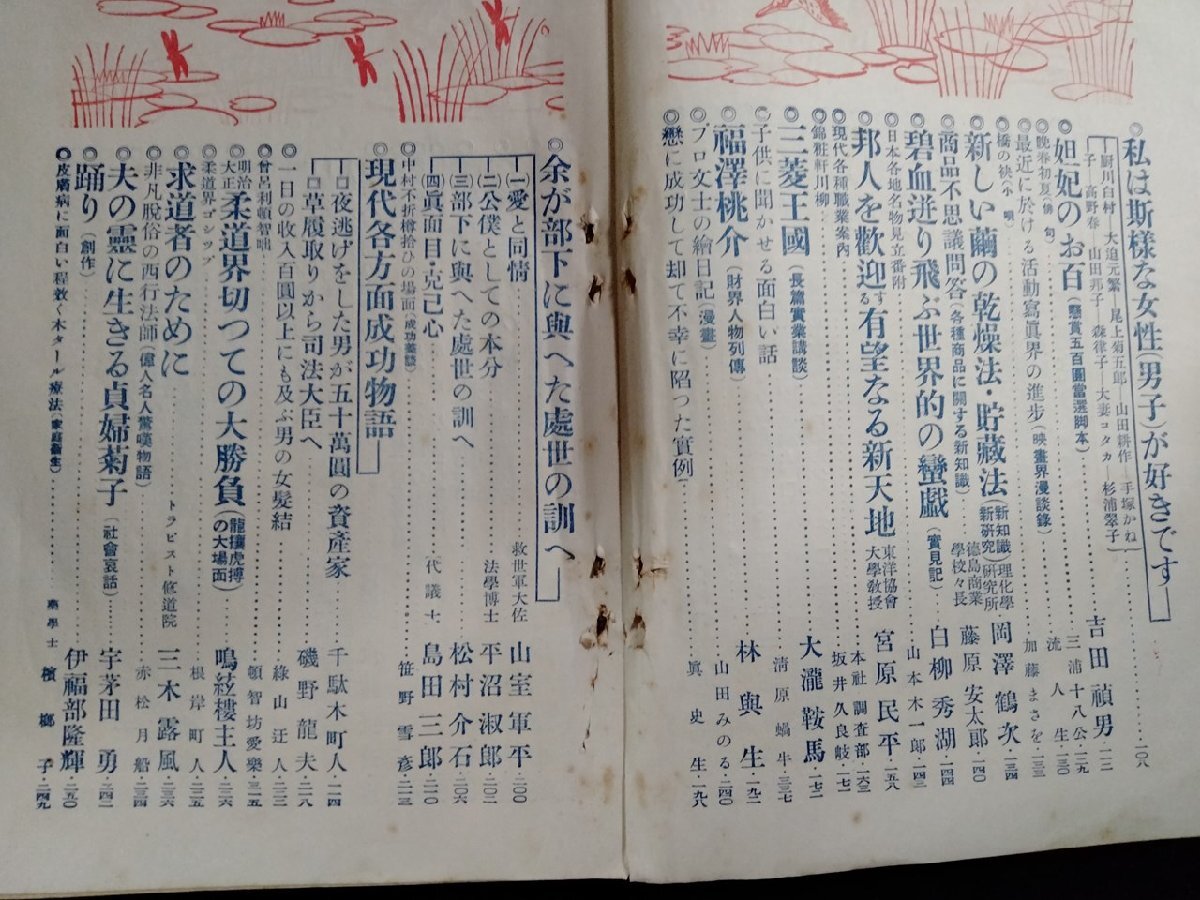 ◎私は斯様な女性(男子)が好きです………一〇八
厨川白村―大迫元繁―尾上菊五郎―山田耕作―手塚かね
子―高野春―山田邦子―森律子―大妻コタカ―杉浦翠子
◎妲妃のお百(懸賞五百圓當選脚本)………吉田禎男・一一二
◎晩春初夏(俳句)………三浦十八公・一二九
◎橋の袂(小唄)………流人生・一三〇
◎最近に於ける活動寫眞界の進步(映畫界漫談錄)………加藤まさを・一三三
◎新しい繭の乾燥法・貯藏法(新知識新硏究)理化學硏究所 岡澤鶴次・一三四
◎商品不思議問答(各種商品に關する新知識)………德島商業學校々長 藤原安太郎・一四〇
◎碧血迸り飛ぶ世界的の蠻戯(實見記)………白柳秀湖・一四三
◎日本各地名物見立番附………山本木一郎・一四四
◎邦人を歡迎する有望なる新天地 東洋協會大學敎授 宮原民平・一五八
◎現代各種職業案內………本社調査部・一六三
◎錦粧軒川柳………坂井久良岐・一七一
◎三菱王國(長篇實業講談)………大瀧鞍馬・一七二
◎子供に聞かせる面白い話………清原蝸牛・三三七
◎福澤桃介(財界人物列傳)………林與生・一九二
◎プロ文士の繪日記(漫畫)………山田みのる・二四〇
◎戀に成功して却て不幸に陷つた實例………眞史生・一九八
◎余が部下に與へた處世の訓へ
(一)愛と同情………救世軍大佐 山室軍平・二〇〇
(二)公僕としての本分………法學博士 平沼淑郎・二〇二
(三)部下に與へた處世の訓へ………松村介石・二〇六
(四)眞面目・克己心………代議士 島田三郎・二一〇
◎中村不折樽拾ひの場面(成功美談)………笹野雪彦・二一三
◎現代各方面成功物語
□夜逃げをした男が五十萬圓の資產家………千駄木町人・二一四
□草履取りから司法大臣へ………磯野龍夫・二一八
◎一日の收入百圓以上にも及ぶ男の女髮結………綠山迂人・二三二
◎曾呂利頓智咄………頓智坊愛樂・三三五
◎明治大正柔道界切つての大勝負(龍攘虎搏の大場面)………鳴絃樓主人・二二六
◎柔道界ゴシツプ………根岸町人・二三五
◎求道者のために………トラピスト修道院 三木露風・二三六
◎非凡脫俗の西行法師(偉人名人驚嘆物語)………赤松月船・二三四
◎夫の靈に生きる貞婦菊子(社會哀話)………宇茅田勇・二四二
◎踊り(創作)………伊福部隆輝・二五〇
◎皮膚病に面白い程效く木タール療法(家庭衞生)………藥學士 檳榔子・二四九